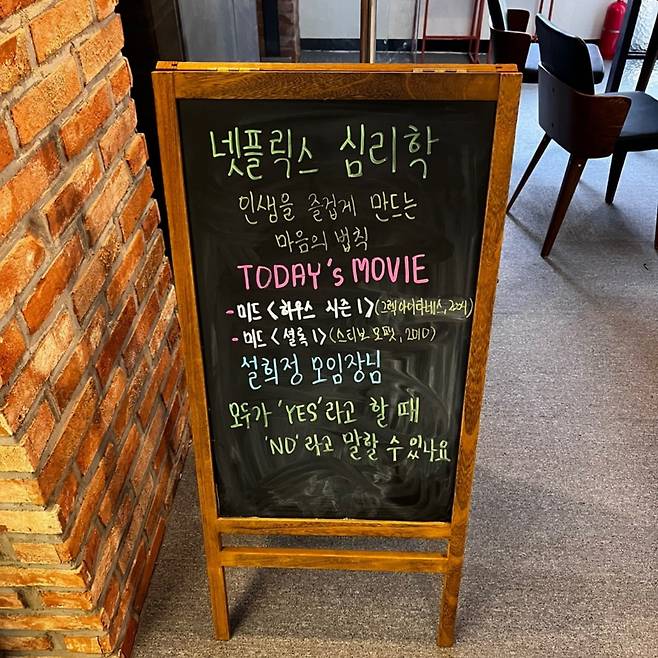 넷플릭스 심리학
인생을 즐겁게 만드는
마음의 법칙
TODAY's MOVIE
- 미드 <하우스 시즌 1> (그렉 야이타네스, 2004)
- 미드 <셜록 1> (스티브 모팻, 2010)
설희정 모임장님
모두가 'YES'라고 할 때
'NO'라고 말할 수 있나요